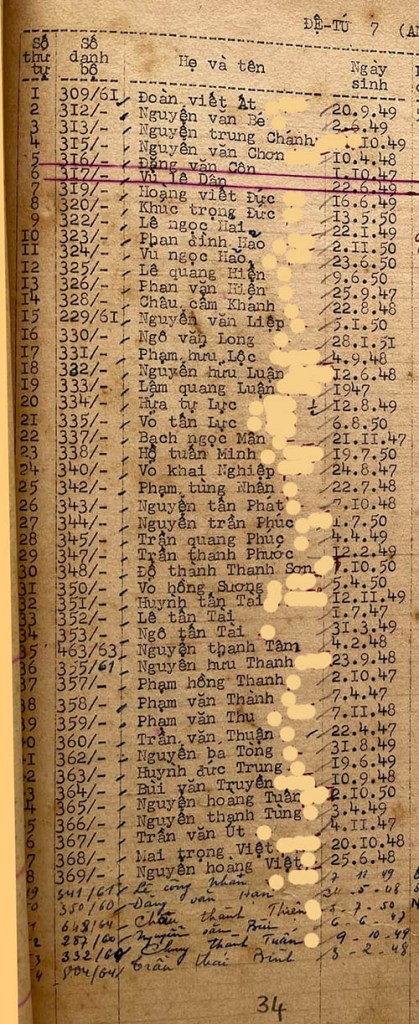 ĐỆ-TỬ 7 (A
Số thứ tự Số danh bộ Họ và tên Ngày sinh
1 309/61 Đoàn viết Ất 20.9.49
2 312/- Nguyễn văn Bé 2.6.49
3 313/- Nguyễn trung Chánh .10.49
4 315/- Nguyễn văn Chơn 10.4.48
5 316/- Đặng văn Côn 1.10.47
6 317/- Vũ lê Dân 22.6.49
7 319/- Hoàng viết Đức 16.6.49
8 320/- Khúc trọng Đức 13.5.50
9 322/- Lê ngọc Hai 22.1.49
10 323/- Phan đình Hao 2.11.50
11 324/- Vũ ngọc Hảo 23.6.50
12 325/- Lê quang Hiện 9.6.50
13 326/- Phan văn Hiện 25.9.47
14 328/- Châu cẩm Khanh 22.8.48
15 229/61 Nguyễn văn Liệp 5.1.50
16 330/- Ngô văn Long 28.1.51
17 331/- Phạm hưu Lộc 4.9.48
18 332/- Nguyễn hưu Luận 12.6.48
19 333/- Lâm quang Luận 1947
20 334/- Hứa tự Lực 12.8.49
21 335/- Võ tấn Lực 6.8.50
22 337/- Bạch ngọc Mân 21.11.47
23 338/- Hồ tuấn Minh 19.7.50
24 340/- Võ khai Nghiệp 24.8.47
25 342/- Phạm tùng Nhân 22.7.48
26 343/- Nguyễn tấn Phát 7.10.48
27 344/- Nguyễn trần Phúc 1.7.50
28 345/- Trần quang Phúc 4.4.49
29 347/- Trần thanh Phước 12.2.49
30 348/- Đỗ thành Thanh Sơn 7.10.50
31 350/- Võ hồng Sương 5.4.50
32 351/- Huynh tấn Tài 12.11.49
33 352/- Lê tấn Tài 1.7.47
34 353/- Ngô tấn Tài 31.3.49
35 463/63 Nguyễn thanh Tâm 4.2.48
36 355/61 Nguyễn hưu Thanh 23.9.48
37 357/- Phạm hồng Thanh 2.10.47
38 358/- Phạm văn Thành 7.4.47
39 359/- Phạm văn Thu 7.11.48
40 360/- Trần văn Thuận 22.4.47
41 362/- Nguyễn bá Tòng 31.8.49
42 363/- Huỳnh đức Trung 19.6.49
43 364/- Bùi văn Truyền 10.9.48
44 365/- Nguyễn hoàng Tuấn 2.10.50
45 366/- Nguyễn thanh Tùng 3.4.49
46 367/- Trần văn Út 4.11.47
47 368/- Mai trọng Việt 20.10.48
48 369/- Nguyễn hoàng Việt 25.6.48
49 341/61 Lê công Nhân 7 11 49
350/60 Đặng văn Hán 5-48
648/64 Châu thành Thiên 7-50
287/60 Nguyễn văn Bửu 6-6-47
332/60 Chung thanh Tuấn 9-10-48
804/64 Trần thái Bình 3-2-48
34